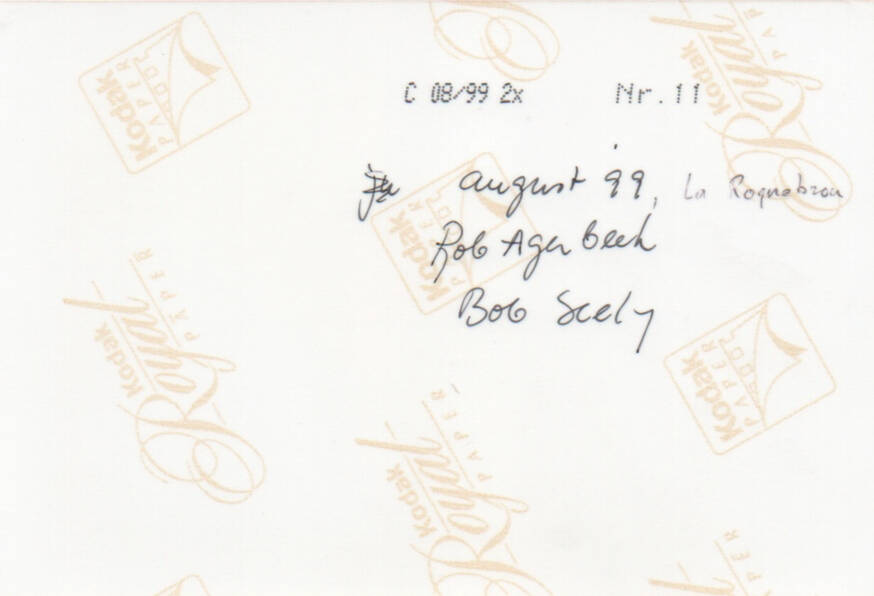 C 08/99 2x Nr. 11
august '99, La Roquebrou
Rob Agerbeek
Bob Seely
Kodak PAPER
Kodak PAPER
Kodak Royal PAPER
Kodak Royal PAPER
Kodak PAPER
Kodak Royal PAPER
PAPER